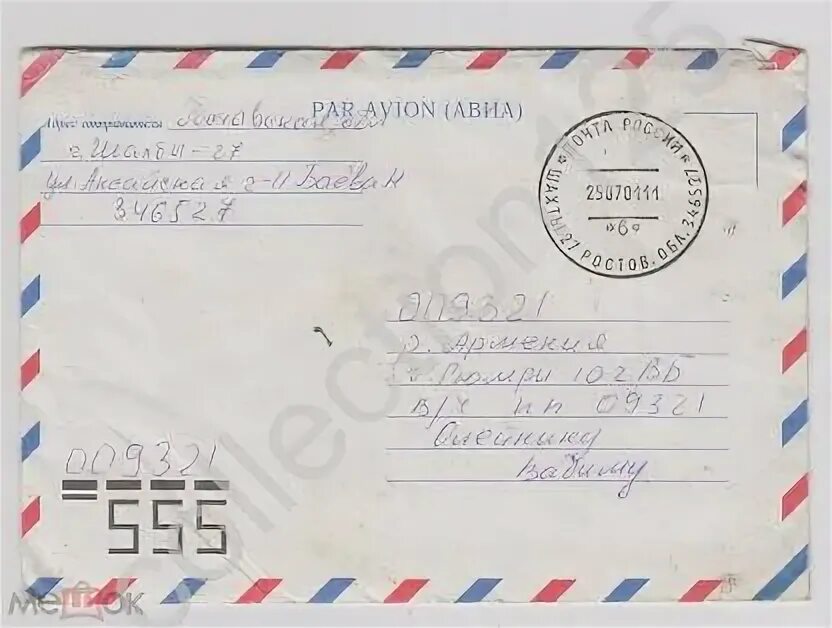 PAR AVION (АВИА)
г. Шахты-27
ул. Аксайская 2-11 Баева Н
346527
ПОЧТА РОССИИ
ШАХТЫ 27 РОСТОВ. ОБЛ. 346527
29070111
*6*
009321
р. Армения
г. Гюмри 102 ВБ
в/ч пп 09321
Олейнику
Вадиму
009321
555
collection125
мешок